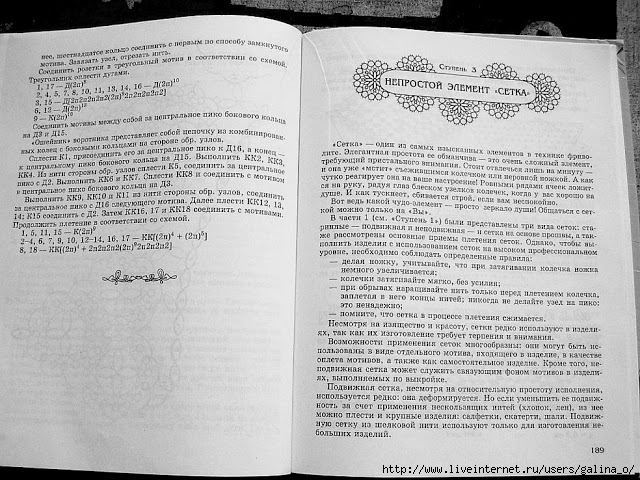 нее, шестнадцатое кольцо соединить с первым по способу замкнутого
мотива. Завязать узел, отрезать нить.
Соединить розетки в треугольный мотив в соответствии со схемой.
Треугольник оплести дугами.
1, 17 — Д(2п)⁹
2, 4, 5, 7, 8, 10, 11, 13, 14, 16 — Д(2п)¹⁰
3, 15 — Д[2п2п2п2п2(2п)⁹2п2п2п2п2]
6, 12 — Д(2п)¹³
9 — К(2п)¹⁰
Соединить мотивы между собой за центральное пико бокового кольца
на Д3 и Д15.
«Ошейник» воротника представляет собой цепочку из комбинирован-
ных колец с боковыми кольцами на стороне обр. узлов.
Сплести К1, присоединив его за центральное пико к Д16, а конец —
к центральному пико бокового кольца на Д15. Выполнить КК2, КК3,
КК4. Из нити стороны обр. узлов сплести К5, соединить за центральное
пико с Д2. Выплести КК6 и КК7. Сплести КК8 и соединить с мотивом
в центральное пико бокового кольца на Д3.
Выполнить КК9, КК10 и К11 из нити стороны обр. узлов, соединить
за центральное пико с Д16 следующего мотива. Далее плести КК12, 13,
14; К15 соединить с Д2. Затем КК16, 17 и КК18 соединить с мотивами.
Продолжить плетение в соответствии со схемой.
1, 5, 11, 15 — К(2п)⁹
2–4, 6, 7, 9, 10, 12–14, 16, 17 — КК[(2п)⁴ + (2п)⁵]
8, 18 — КК[(2п)⁴ + 2п2п2п2(2п)⁶2п2п2п2]
Ступень 3
НЕПРОСТОЙ ЭЛЕМЕНТ «СЕТКА»
«Сетка» — один из самых изысканных элементов в технике фриво-
лите. Элегантная простота ее обманчива — это очень сложный элемент,
требующий пристального внимания. Стоит отвлечься лишь на минуту —
и она уже «мотит» съежившимся колечком или неровной ножкой. А как
чутко реагирует она на ваше настроение! Ровными рядами ячеек ложит-
ся на руку, радуя глаз блеском узелков изделие, когда у вас хорошо на
душе. И как тускнеет, сбивается строй, если вам неспокойно.
Вот ведь какой чудо-элемент — просто зеркало души! Общаться с сет-
кой можно только на «Вы».
В части 1 (см. «Ступень 1») были представлены три вида сеток: ста-
ринные — подвижная и неподвижная — и сетка на основе прошвы, а так-
же рассмотрены основные приемы плетения сеток. Однако, чтобы вы-
полнить изделия с использованием сеток на высоком профессиональном
уровне, необходимо соблюдать определенные правила:
— делая ножку, учитывайте, что при затягивании колечка ножка
немного увеличивается;
— колечки затягивайте мягко, без усилия;
— при обрывах наращивайте нить только перед плетением колечка,
заплетая в него концы нитей; никогда не делайте узел на пико:
это ненадежно;
— помните, что сетка в процессе плетения сжимается.
Несмотря на изящество и красоту, сетки редко используют в издели-
ях, так как их изготовление требует терпения и внимания.
Возможности применения сеток многообразны: они могут быть ис-
пользованы в виде отдельного мотива, входящего в изделие, в качестве
оплета мотивов, а также как самостоятельное изделие. Кроме того, не-
подвижная сетка может служить связующим фоном мотивов в издели-
ях, выполняемых по выкройке.
Подвижная сетка, несмотря на относительную простоту исполнения,
используется редко: она деформируется. Но если уменьшить ее подвиж-
ность за счет применения нескользящих нитей (хлопок, лен), из нее
можно плести и крупные изделия: салфетки, скатерти, шали. Подвиж-
ную сетку из шелковой нити используют только для изготовления не-
больших изделий.
189
http://www.liveinternet.ru/users/galina_o/